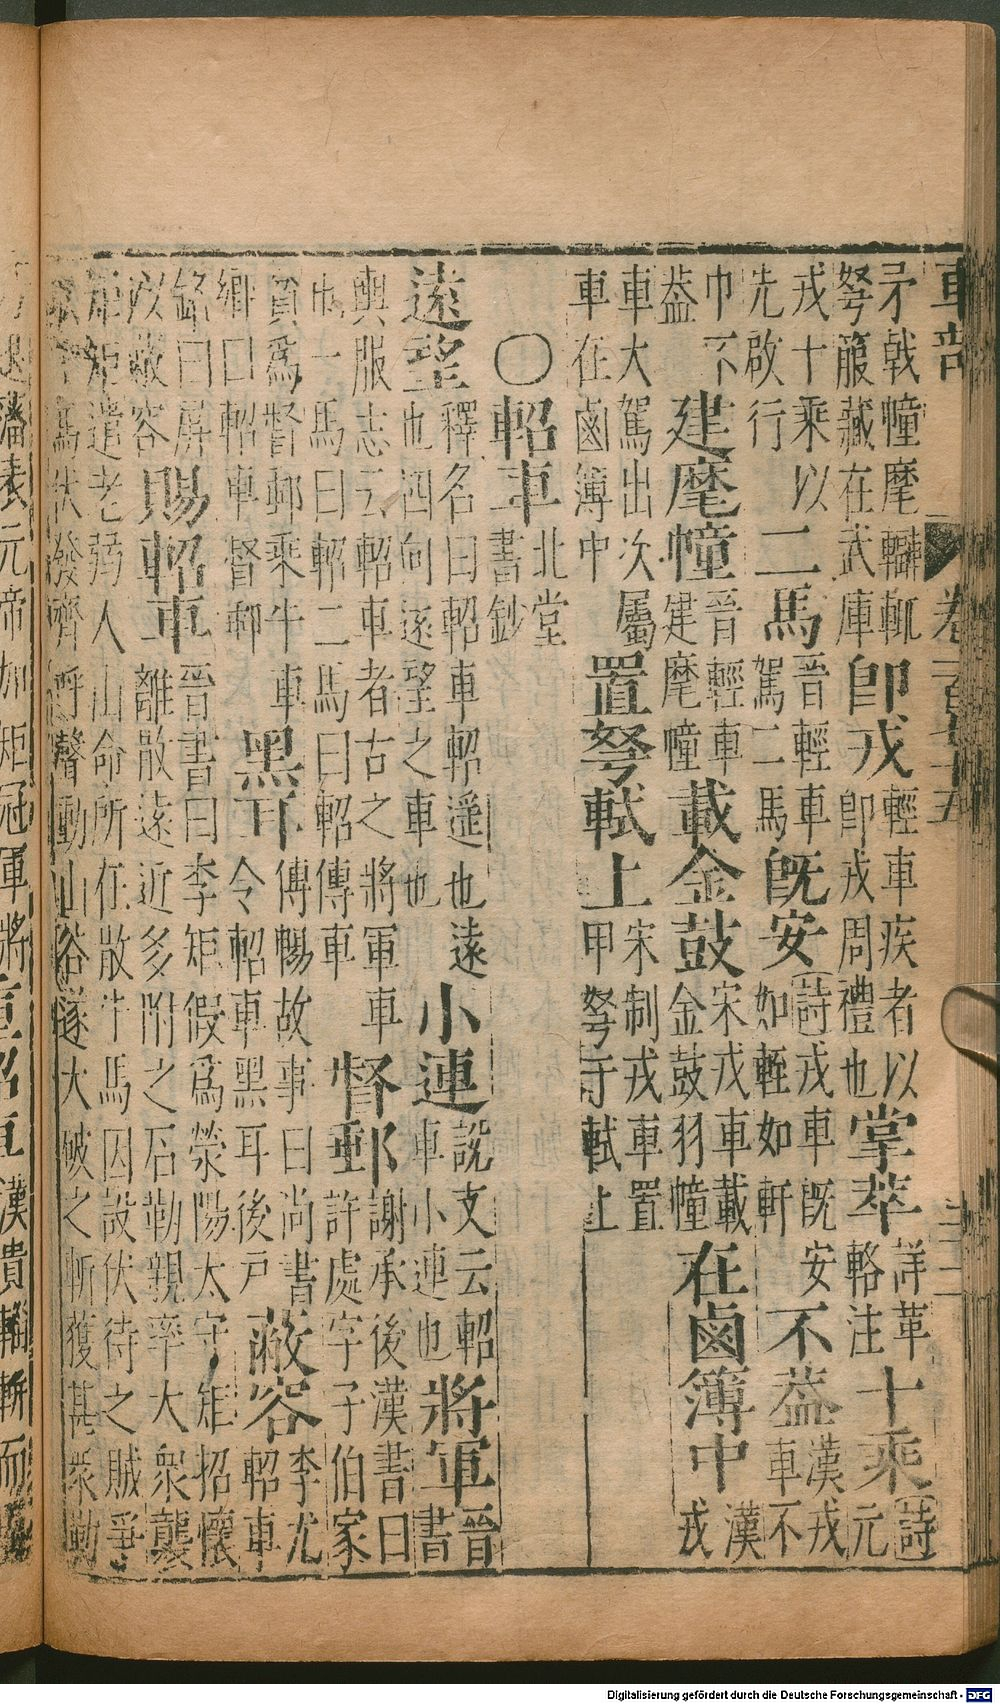 車部 卷一百 十五
矛戟幢麾轓輒弩箙藏在武庫即戎輕車疾者以即戎周禮也掌萃詳革輅注十乘詩元
戎十乘以先啟行二馬晉輕車駕二馬既安詩戎車既安如輊如軒不蓋漢戎車不
巾不蓋建麾幢晉輕車建麾幢載金鼓宋戎車載金鼓羽幢在鹵簿中漢戎
車大駕出次屬車在鹵簿中置弩軾上宋制戎車置甲弩于軾上
○軺車北堂書鈔
遠望釋名曰軺車軺遥也遠也四向遠望之車也小連說文云軺車小連也將軍晉書
輿服志云軺車者古之將軍車也一馬曰軺二馬曰軺傳車督郵謝承後漢書曰許處字子伯家
貧爲督郵乘牛車鄉曰軺車督郵黑耳傅暢故事曰尚書令軺車黑耳後戸蔽容李尤軺車
銘曰屏以蔽容賜軺車晉書曰李矩假爲滎陽太守矩招懷離散遠近多附之石勒親率大衆襲
矩矩遣老弱人山命所在散牛馬因設伏待之賊爭取牛馬伏發齊呼聲動山谷遂大破之斬獲甚衆勒
乃退藩表元帝加矩冠軍將重軺車漢貴輜軿而
Digitalisierung gefördert durch die Deutsche Forschungsgemeinschaft - DFG